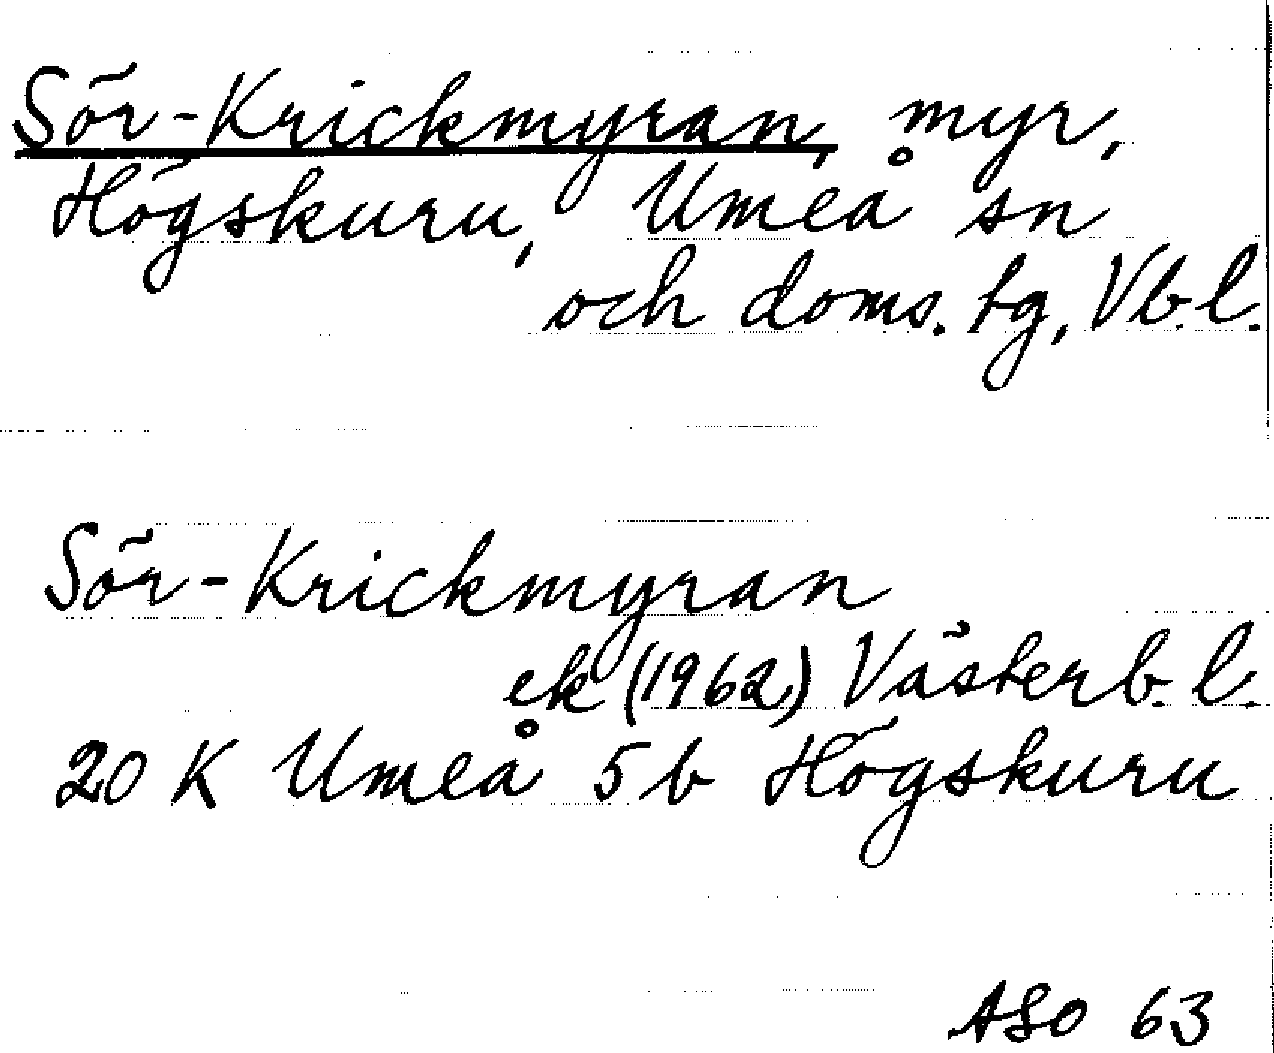 Sör-Krickmyran, myr,
Högskuru, Umeå sn
och doms. tg, Vb. l.
Sör-Krickmyran
ek (1962) Västerb. l.
20 K Umeå 5b Högskuru
ASO 63